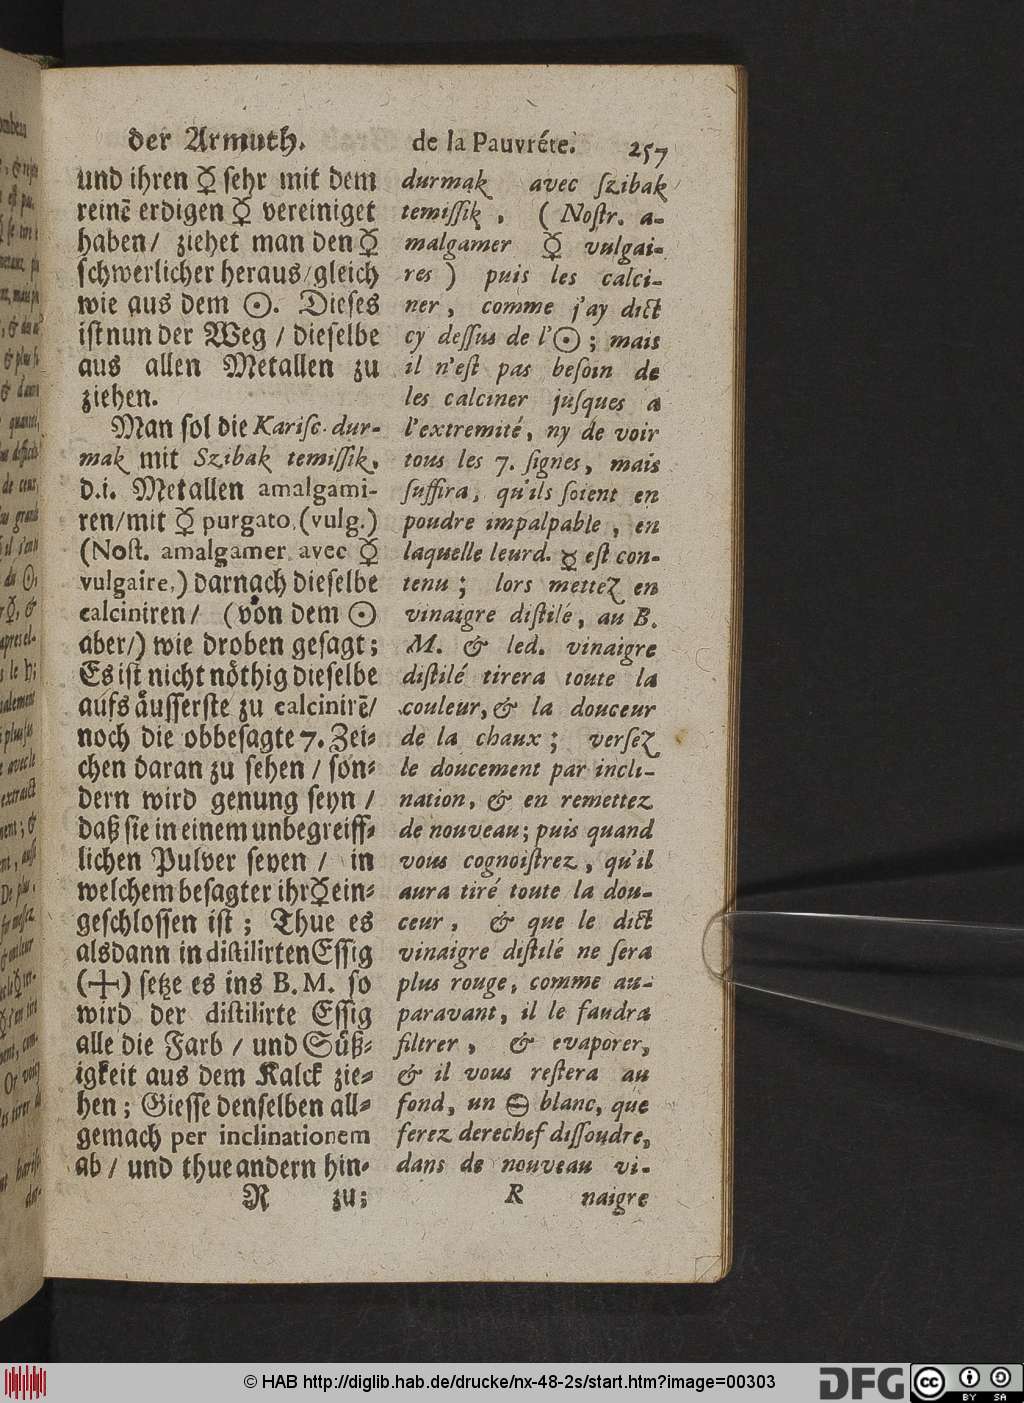 der Armuth.
und ihren ☿ sehr mit dem
reinē erdigen ☿ vereiniget
haben/ ziehet man den ☿
schwerlicher heraus/gleich
wie aus dem ☉. Dieses
ist nun der Weg / dieselbe
aus allen Metallen zu
ziehen.
Man sol die Karisc. dur-
mak mit Szibak temissik,
d.i. Metallen amalgami-
ren/mit ☿ purgato, (vulg.)
(Nost. amalgamer avec ☿
vulgaire,) darnach dieselbe
calciniren/ (von dem ☉
aber/) wie droben gesagt;
Es ist nicht nöthig dieselbe
aufs äusserste zu calcinirē/
noch die obbesagte 7. Zei-
chen daran zu sehen / son-
dern wird genung seyn /
daß sie in einem unbegreiff-
lichen Pulver seyen / in
welchem besagter ihr ☿ ein-
geschlossen ist ; Thue es
alsdann in distilirten Essig
(+) setze es ins B. M. so
wird der distilirte Essig
alle die Farb / und Süß-
igkeit aus dem Kalck zie-
hen ; Giesse denselben all-
gemach per inclinationem
ab / und thue andern hin-
R zu;
de la Pauvréte. 257
durmak avec szibak
temissik, ( Nostr. a-
malgamer ☿ vulgai-
res ) puis les calci-
ner, comme j'ay dict
cy dessus de l'☉ ; mais
il n'est pas besoin de
les calciner jusques a
l'extremité, ny de voir
tous les 7. signes, mais
suffira, qu'ils soient en
poudre impalpable, en
laquelle leurd. ☿ est con-
tenu ; lors mettez en
vinaigre distilé, au B.
M. & led. vinaigre
distilé tirera toute la
couleur, & la douceur
de la chaux ; versez
le doucement par incli-
nation, & en remettez
de nouveau ; puis quand
vous cognoistrez, qu'il
aura tiré toute la dou-
ceur, & que le dict
vinaigre distilé ne sera
plus rouge, comme au-
paravant, il le faudra
filtrer, & evaporer,
& il vous restera au
fond, un 🜔 blanc, que
ferez derechef dissoudre,
dans de nouveau vi-
R naigre
© HAB http://diglib.hab.de/drucke/nx-48-2s/start.htm?image=00303
DFG
cc BY SA